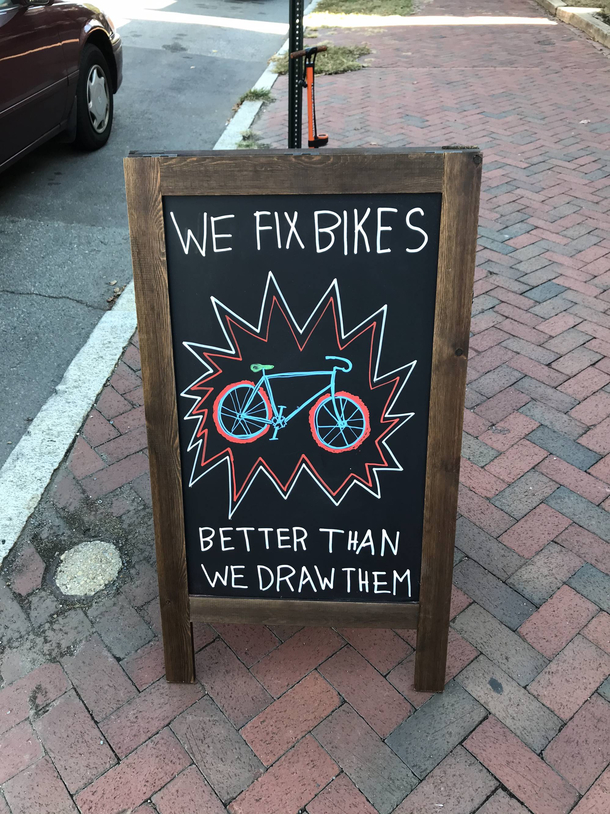 WE FIX BIKES
BETTER THAN
WE DRAW THEM